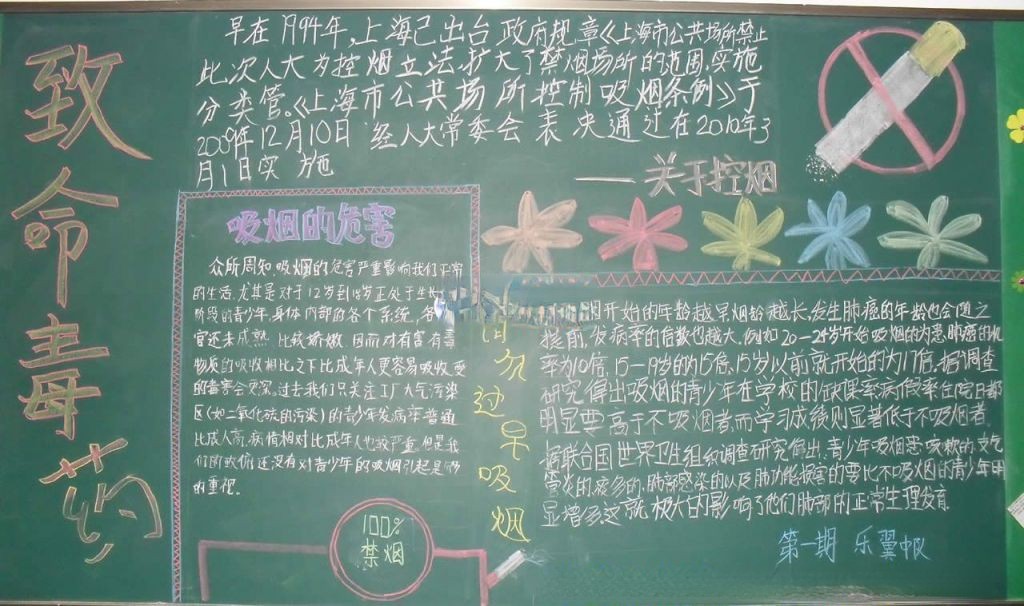 致命毒药
早在1994年,上海已出台政府规章《上海市公共场所禁止
此次人大为控烟立法,扩大了禁烟场所的范围,实施
分类管。《上海市公共场所控制吸烟条例》于
2009年12月10日经人大常委会表决通过在2010年3
月1日实施
——关于控烟
吸烟的危害
众所周知,吸烟的危害严重影响我们正常
的生活,尤其是对于12岁到18岁正处于生长
阶段的青少年,身体内部的各个系统、各
官还未成熟,比较娇嫩,因而对有害有毒
物质的吸收相比之下比成年人更容易吸收受
的毒害会更深。过去我们只关注工厂大气污染
区(如二氧化硫的污染)的青少年发病率普遍
比成人高,病情相对比成年人也较严重,但是我
们却还没有对青少年的吸烟引起足够
的重视。
100%
禁烟
请勿过早吸烟
烟开始的年龄越早烟龄越长,发生肺癌的年龄也会随之
提前,发病率的倍数也越大,例如20-24岁开始吸烟的为患肺癌的机
率为10倍,15-19岁的为15倍,15岁以前就开始的为17倍。据调查
研究得出吸烟的青少年在学校的缺课率、病假率、住院日都
明显要高于不吸烟者,而学习成绩则显著低于不吸烟者。
据联合国世界卫生组织调查研究得出,青少年吸烟患咳嗽的、支气
管炎的、痰多的、肺部感染的以及肺功能损害的要比不吸烟的青少年明
显增多,这就极大的影响了他们肺部的正常生理发育。
第一期 乐翼中队